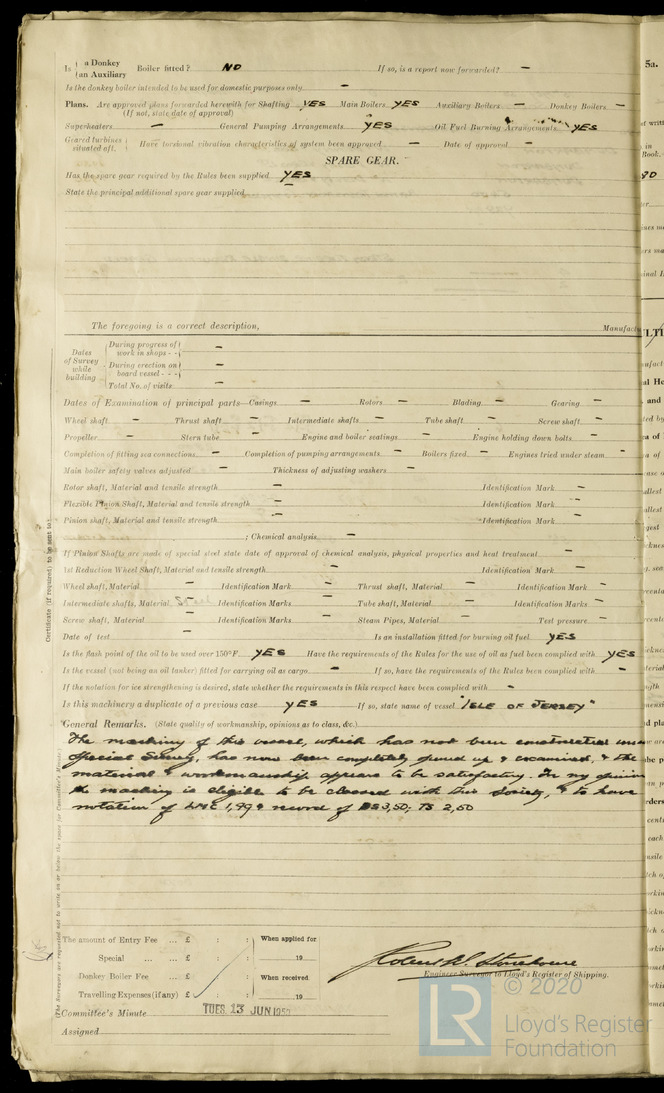 Is { a Donkey / an Auxiliary } Boiler fitted? NO If so, is a report now forwarded? —
Is the donkey boiler intended to be used for domestic purposes only —
Plans. Are approved plans forwarded herewith for Shafting YES Main Boilers YES Auxiliary Boilers — Donkey Boilers —
(If not, state date of approval)
Superheaters — General Pumping Arrangements YES Oil Fuel Burning Arrangements YES
Geared turbines situated aft. Have torsional vibration characteristics of system been approved — Date of approval —
SPARE GEAR.
Has the spare gear required by the Rules been supplied YES
State the principal additional spare gear supplied
The foregoing is a correct description, Manufact
Dates of Survey while building
During progress of work in shops - - —
During erection on board vessel - - - —
Total No. of visits —
Dates of Examination of principal parts—Casings — Rotors — Blading — Gearing —
Wheel shaft — Thrust shaft — Intermediate shafts — Tube shaft — Screw shaft —
Propeller — Stern tube — Engine and boiler seatings — Engine holding down bolts —
Completion of fitting sea connections — Completion of pumping arrangements — Boilers fixed — Engines tried under steam —
Main boiler safety valves adjusted — Thickness of adjusting washers —
Rotor shaft, Material and tensile strength — Identification Mark —
Flexible Pinion Shaft, Material and tensile strength — Identification Mark —
Pinion shaft, Material and tensile strength — Identification Mark —
; Chemical analysis —
If Pinion Shafts are made of special steel state date of approval of chemical analysis, physical properties and heat treatment —
1st Reduction Wheel Shaft, Material and tensile strength — Identification Mark —
Wheel shaft, Material — Identification Mark — Thrust shaft, Material — Identification Mark —
Intermediate shafts, Material Identification Marks — Tube shaft, Material — Identification Marks —
Screw shaft, Material — Identification Marks — Steam Pipes, Material — Test pressure —
Date of test — Is an installation fitted for burning oil fuel YES
Is the flash point of the oil to be used over 150°F. YES Have the requirements of the Rules for the use of oil as fuel been complied with YES
Is the vessel (not being an oil tanker) fitted for carrying oil as cargo — If so, have the requirements of the Rules been complied with —
If the notation for ice strengthening is desired, state whether the requirements in this respect have been complied with —
Is this machinery a duplicate of a previous case YES If so, state name of vessel "ISLE OF JERSEY"
General Remarks. (State quality of workmanship, opinions as to class, &c.)
The machiny of this vessel, which has not been constructed un
Special Survey, has now been completely opened up & examined, & the
material & workmanship appears to be satisfactory. In my opinion
the machiny is eligible to be classed with this Society, & to have
notation of LMC 1,49 & record of BS 3,50; TS 2,50
The amount of Entry Fee ... £ : : When applied for
Special ... ... £ : : 19
Donkey Boiler Fee ... £ : : When received
Travelling Expenses (if any) £ : : 19
Engineer Surveyor to Lloyd's Register of Shipping.
Committee's Minute TUES. 13 JUN 1950
Assigned
Certificate (if required) to be sent to
(The Surveyors are requested not to write on or below the space for Committee's Minute.)
5a.
© 2020
LR
Lloyd's Register
Foundation